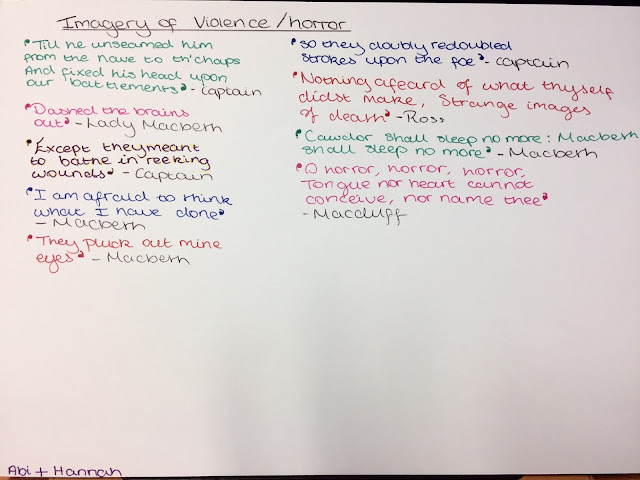 Imagery of Violence/horror
"Till he unseamed him
from the nave to th'chaps
And fixed his head upon
our battlements" - captain
"Dashed the brains
out" - Lady Macbeth
"Except they meant
to bathe in reeking
wounds" - Captain
"I am afraid to think
what I have done"
- Macbeth
"They pluck out mine
eyes" - Macbeth
"So they doubly redoubled
strokes upon the foe" - captain
"Nothing afeard of what thyself
didst make, Strange images
of death" - Ross
"Cawdor shall sleep no more: Macbeth
shall sleep no more" - Macbeth
"O horror, horror, horror,
Tongue nor heart cannot
conceive, nor name thee"
- Macduff
Abi + Hannah